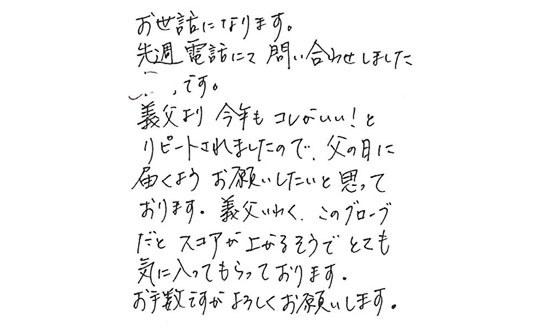 お世話になります。
先週 電話にて 問い合わせしました
、です。
義父より 今年も コレがいい！と
リピートされましたので、父の日に
届くよう お願いしたいと思って
おります。義父いわく、このグローブ
だと スコアが上がるそうで とても
気に入ってもらっております。
お手数ですが よろしくお願いします。